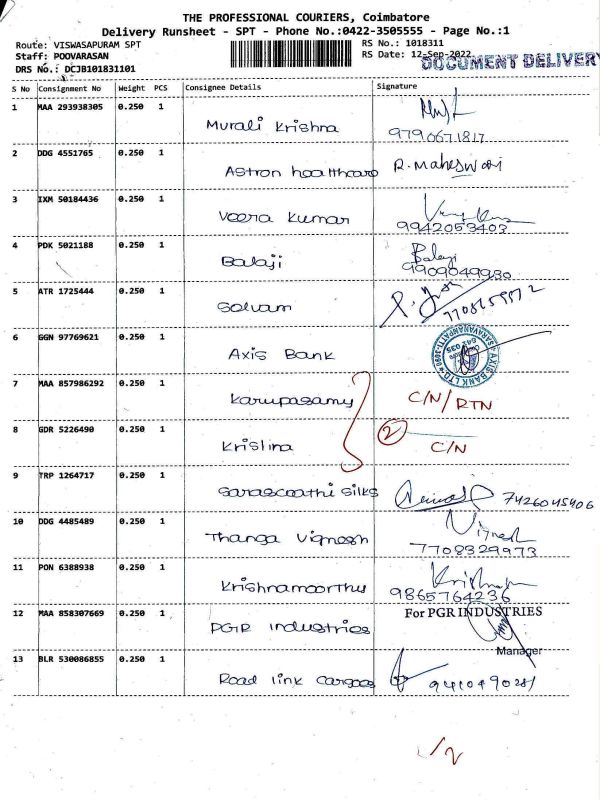 THE PROFESSIONAL COURIERS, Coimbatore
Delivery Runsheet - SPT - Phone No.:0422-3505555 - Page No.:1
Route: VISWASAPURAM SPT
RS No.: 1018311
Staff: POOVARASAN
RS Date: 12-Sep-2022
DRS No.: DCJB101831101
DOCUMENT DELIVERY
S No Consignment No Weight PCS Consignee Details Signature
1 MAA 293938305 0.250 1
Murali Krishna
9790671817
2 DDG 4551765 0.250 1
Astron healthcare R. Maheswari
3 IXM 50184436 0.250 1
Veera Kumar
9942053403
4 PDK 5021188 0.250 1
Balaji Balaji
9909049980
5 ATR 1725444 0.250 1
Selvam
6 GGN 97769621 0.250 1
Axis Bank
AXIS BANK LTD
7 MAA 857986292 0.250 1
Karupasamy C/N/RTN
8 GDR 5226490 0.250 1
2
Krishna C/N
9 TRP 1264717 0.250 1
Saraswathi Silks 7426045406
10 DDG 4485489 0.250 1
Thanga Vignesh Vignesh
7708329973
11 PON 6388938 0.250 1
Krishnamoorthy
9865764236
12 MAA 858307669 0.250 1
For PGR INDUSTRIES
PGR Industries
Manager
13 BLR 530086855 0.250 1
Road link Cargoes